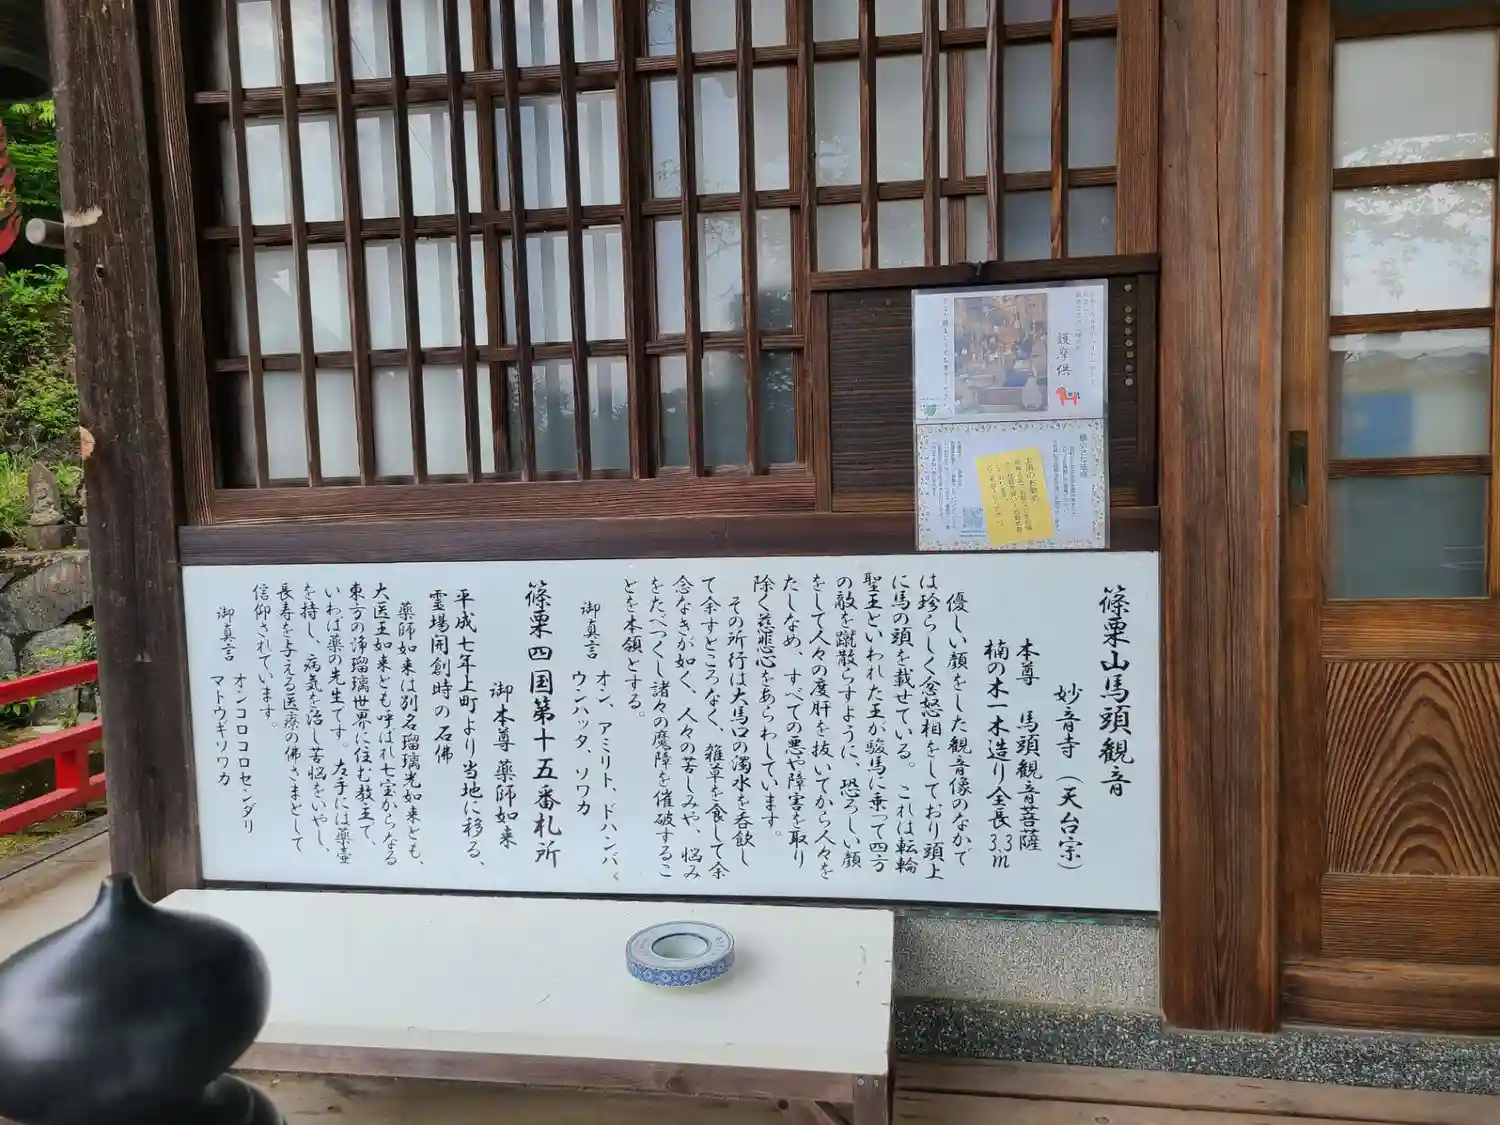 篠栗山馬頭観音
妙音寺（天台宗）
本尊 馬頭観音菩薩
楠の木一木造り全長3.3m
優しい顔をした観音像のなかで
は珍らしく忿怒相をしており頭上
に馬の頭を載せている。これは転輪
聖王といわれた王が駿馬に乗って四方
の敵を蹴散らすように、恐ろしい顔
をして人々の度肝を抜いてから人々を
たしなめ、すべての悪や障害を取り
除く慈悲心をあらわしています。
その所行は大馬口の濁水を呑飲し
て余すところなく、雑草を食して余
念なきが如く、人々の苦しみや、悩み
をたべつくし諸々の魔障を催破するこ
とを本領とする。
御真言 オン、アミリト、ドハンバく
ウンハッタ、ソワカ
篠栗四国第十五番札所
御本尊薬師如来
平成七年上町より当地に移る、
霊場開創時の石佛
薬師如来は別名瑠璃光如来とも、
大医王如来とも呼ばれ七宝からなる
東方の浄瑠璃世界に住む教主て、
いわば薬の先生てす。左手には薬壷
を持し、病気を治し苦悩をいやし、
長寿を与える医療の佛さまとして
信仰されています。
御真言 オンコロコロセンダリ
マトウギソワカ
護摩供